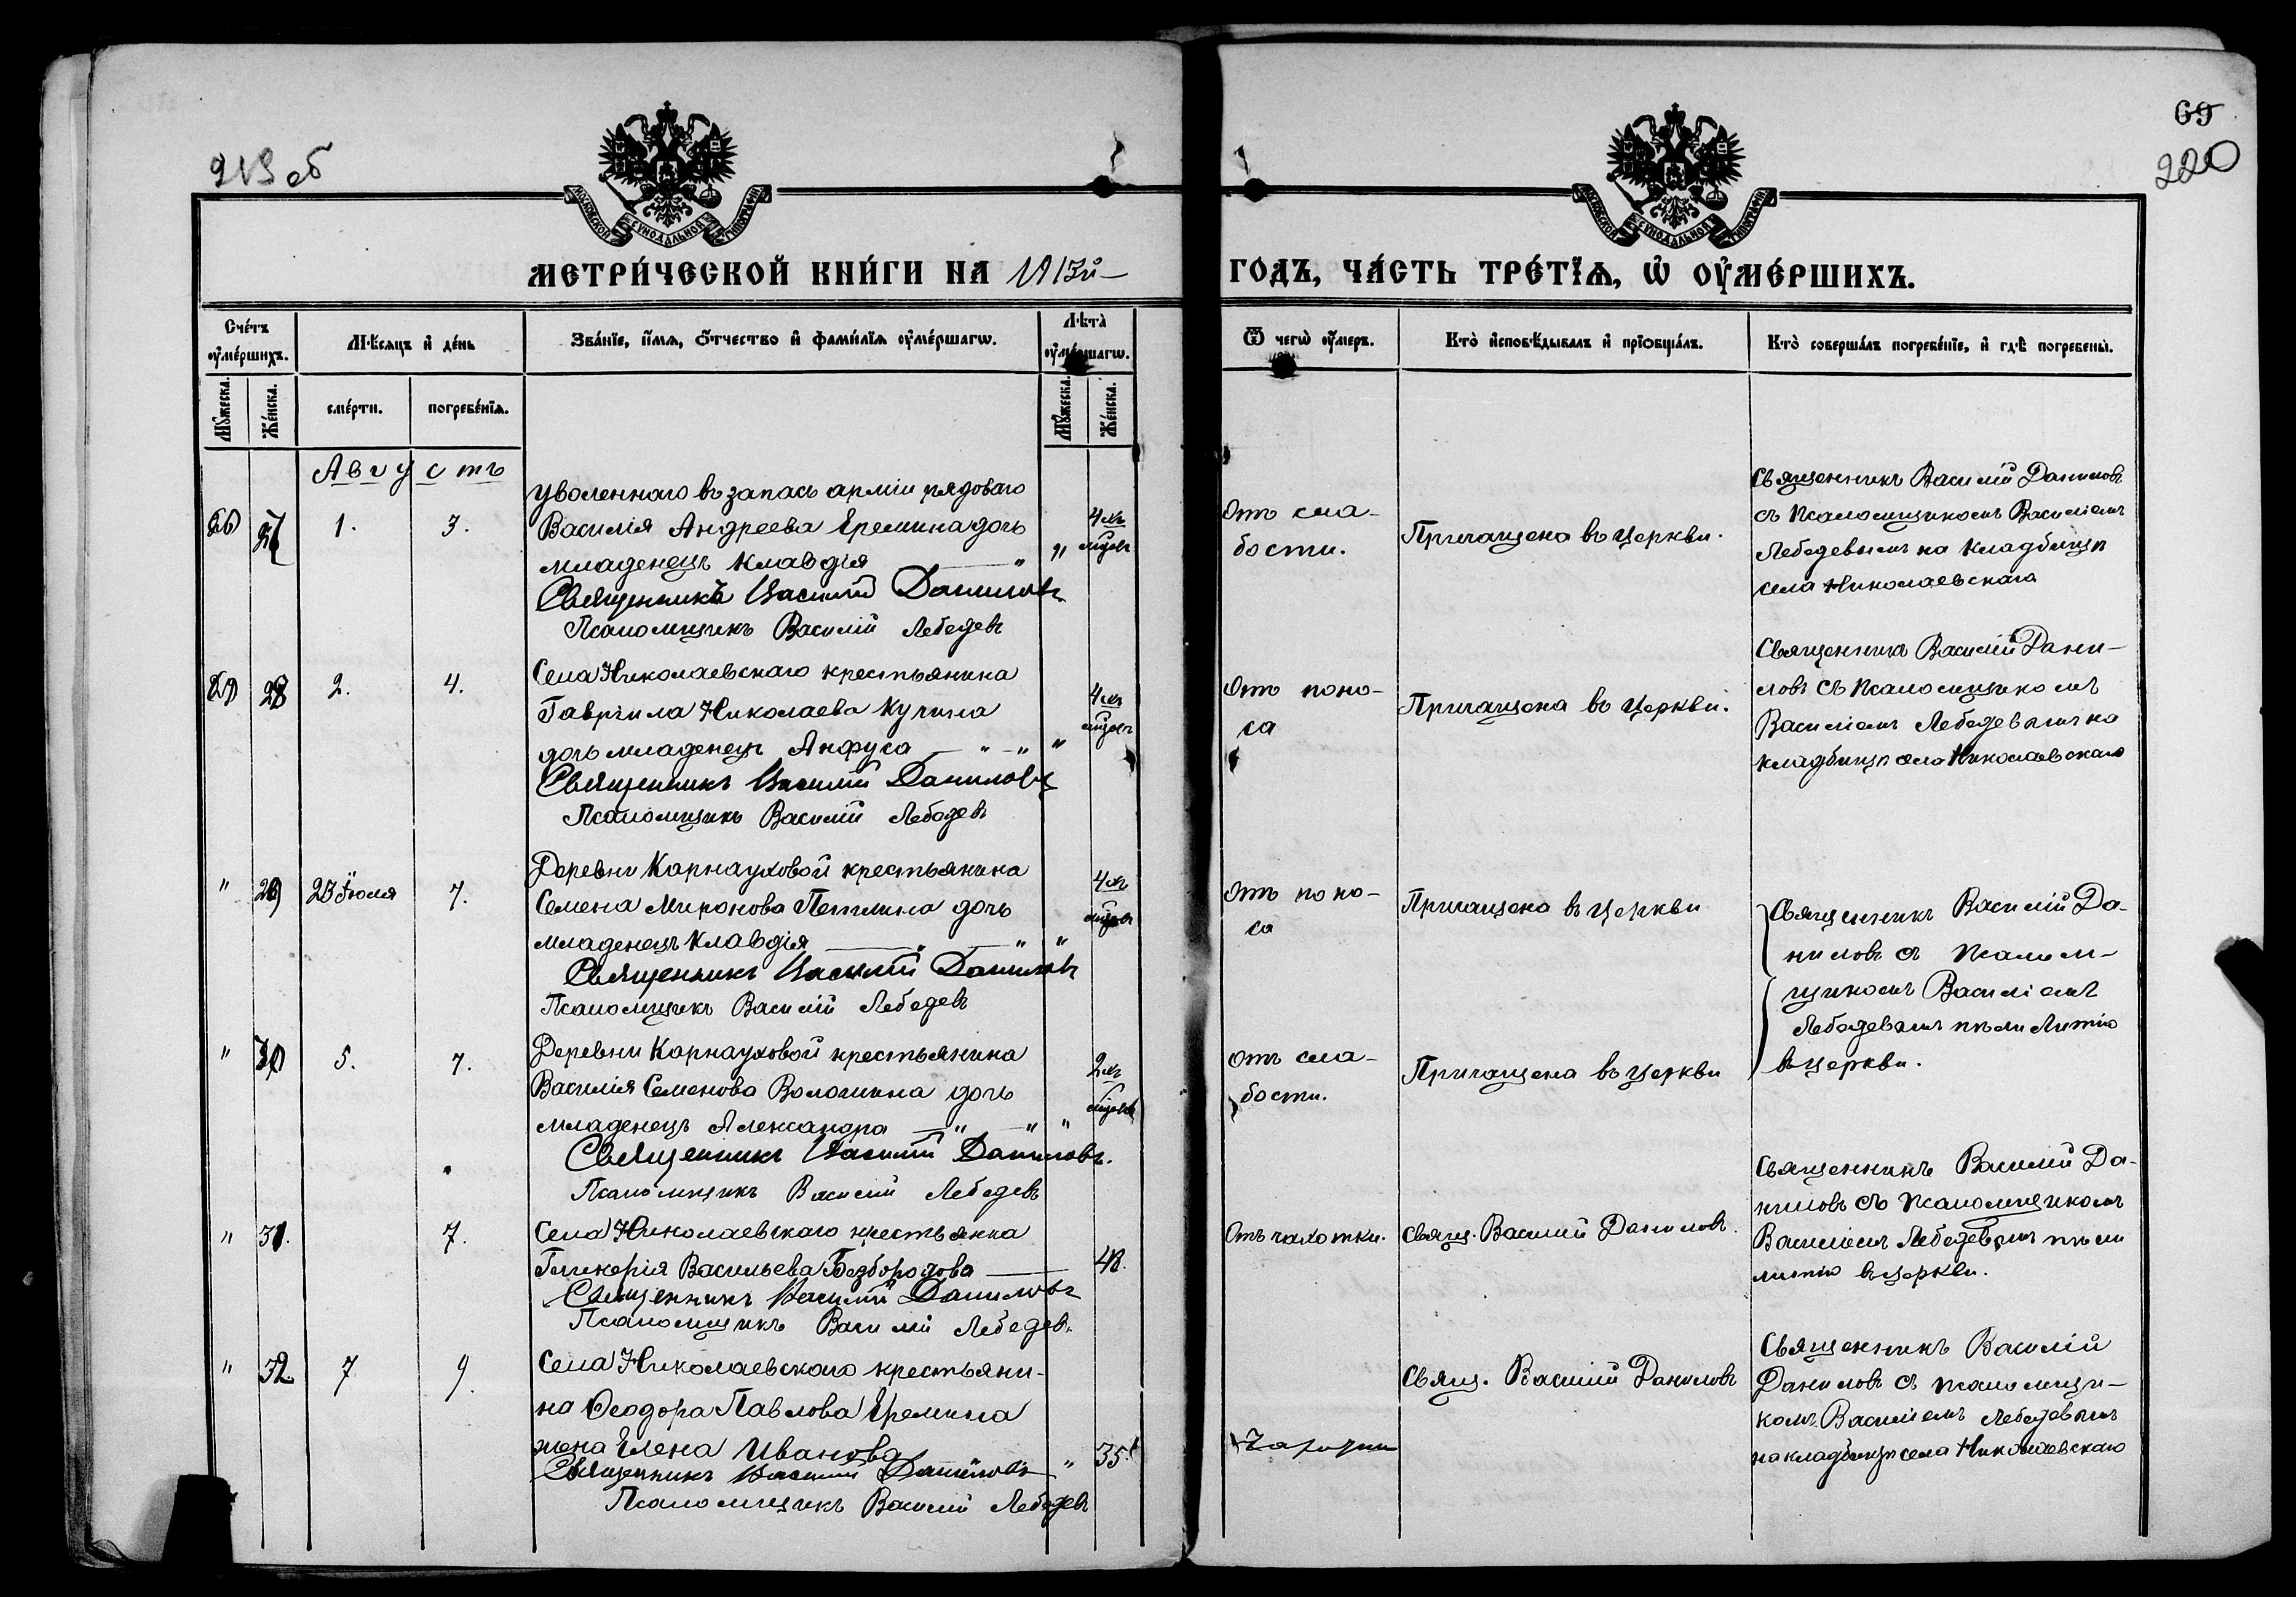 об
69
220
МОСКОВСКОЙ СУНОДАЛЬНОЙ ТИПОГРАФІИ
МОСКОВСКОЙ СУНОДАЛЬНОЙ ТИПОГРАФІИ
МЕТРИ́ЧЕСКОЙ КНИ́ГИ НА 1913й
ГОДЪ, ЧА́СТЬ ТРЕ́ТІѦ, Ѡ҆ ОУ҆МЕ́РШИХЪ.
Сче́тъ оу҆ме́ршихъ.
Мꙋ́жеска.
Же́нска.
Мѣ́сяцъ и҆ де́нь
сме́рти.
погребе́нїѧ.
Зва́нїе, и҆́мѧ, ѻ҆́тчество и҆ фами́лїѧ оу҆ме́ршагѡ.
Лѣ̀та оу҆ме́ршагѡ.
Мꙋ́жеска.
Же́нска.
Ѿ чегѡ̀ оу҆́меръ.
Кто̀ и҆сповѣ́дывалъ и҆ прїѡбща́лъ.
Кто̀ соверша́лъ погребе́нїе, и҆ гдѣ̀ погребены̀.
Августъ
27
1.
3.
Уволеннаго въ запасъ арміи рядоваго
Василія Андреева Еремина дочь
младенецъ Клавдія "
Священникъ Василій Данилов
Псаломщикъ Василій Лебедевъ
"
4хъ
мѣсяц
Отъ сла-
бости.
Причащена въ церкви.
Священникъ Василій Даниловъ
съ псаломщикомъ Василіемъ
Лебедевымъ на кладбищѣ
села Николаевскаго
28
2.
4.
Села Николаевскаго крестьянина
Гавріила Николаева Кучина
дочь младенецъ Анфуса " "
Священникъ Василій Даниловъ
Псаломщикъ Василій Лебедевъ
"
4хъ
мѣсяц
Отъ поно-
са
Причащена въ церкви.
Священникъ Василій Дани-
ловъ съ псаломщикомъ
Василіемъ Лебедевымъ на
кладбищѣ села Николаевскаго
"
29
23 Іюля
7.
Деревни Карнауховой крестьянина
Семена Миронова Петлина дочь
младенецъ Клавдія " "
Священникъ Василій Даниловъ
Псаломщикъ Василій Лебедевъ
"
4хъ
мѣсяц
Отъ поно-
са
Причащена въ церкви
Священникъ Василій Да-
ниловъ съ псалом-
щикомъ Василіемъ
Лебедевымъ пѣли литію
въ церкви.
"
30
5.
7.
Деревни Карнауховой крестьянина
Василія Семенова Волошина дочь
младенецъ Александра " "
Священникъ Василій Даниловъ.
Псаломщикъ Василій Лебедевъ
"
2хъ
мѣсяц
Отъ сла-
бости.
Причащена въ церкви
"
31.
7.
Села Николаевскаго крестьянка
Гликерія Васильева Безбородова
Священникъ Василій Даниловъ
Псаломщикъ Василій Лебедевъ
48.
Отъ чахотки.
Свящ. Василій Даниловъ.
Священникъ Василій Да-
ниловъ съ псаломщикомъ
Василіемъ Лебедевымъ пѣли
литію въ церкви.
"
32.
7
9.
Села Николаевскаго крестьяни-
на Ѳеодора Павлова Еремина
жена Елена Иванова
Священникъ Василій Даниловъ
Псаломщикъ Василій Лебедевъ
"
35
Чахотки
Свящ. Василій Даниловъ
Священникъ Василій
Даниловъ съ псаломщи-
комъ Василіемъ Лебедевымъ
на кладбищѣ села Николаевскаго